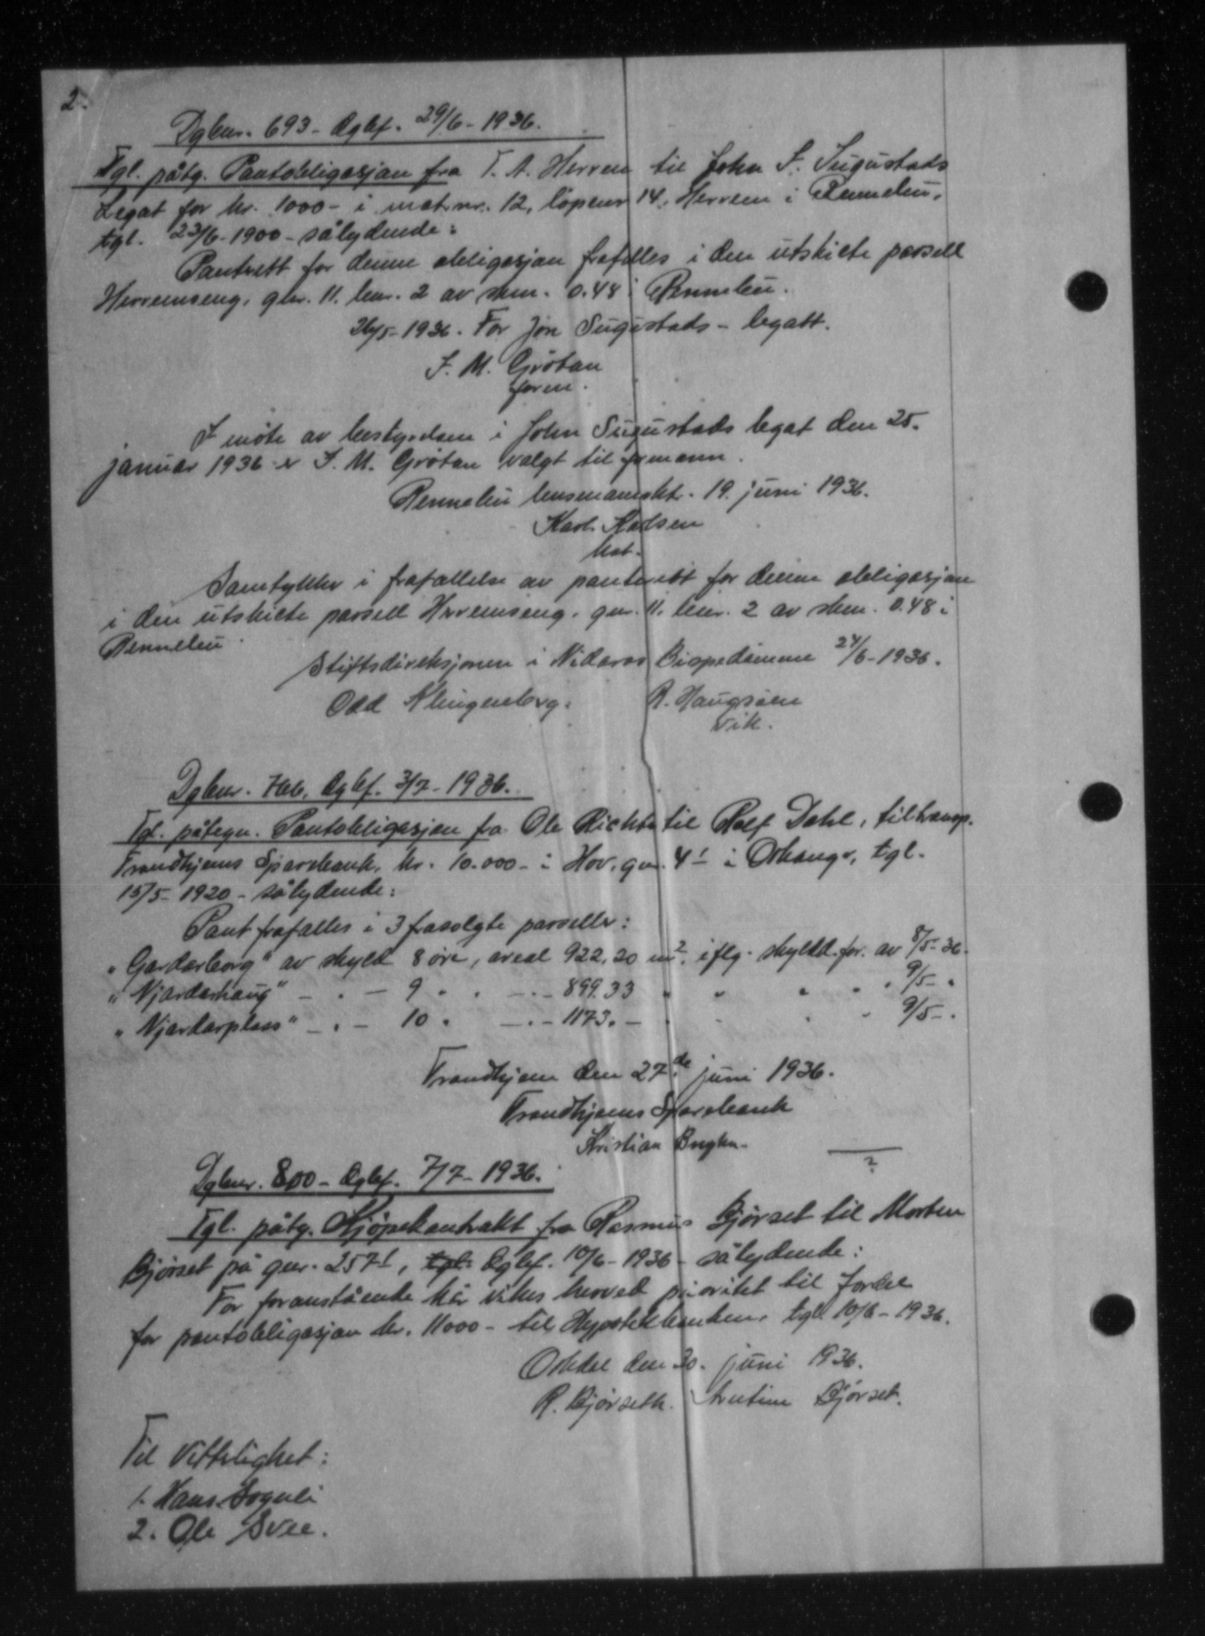 2.
Dgbnr. 693 - Dgbf. 29/6 - 1936.
Tgl. påtg. Pantobligasjon fra T. A. Herrem til John S. Sugustads
Legat for kr. 1000 - i mat.nr. 12, löpenr 14, Herrem i Rennebu,
tgl. 23/6 - 1900 - sålydende:
Pantrett for denne obligasjon frafalles i den utskilte parsell
Herremseng, gnr. 11. bnr. 2 av skm. 0.48 i Rennebu.
26/5 - 1936. For Jon Sugustads - legatt.
I. M. Grötan
form.
I möte av bestyrelsen i John Sugustads legat den 25.
januar 1936 er I. M. Grötan valgt til formann.
Rennebu lensmannskt. 19. juni 1936.
Karl Madsen
kst.
Samtykker i frafallelse av panterett for denne obligasjon
i den utskilte parsell Herremseng, gnr. 11, bnr. 2 av skm. 0.48 i
Rennebu
Stiftsdireksjonen i Nidaros Bispedömme 24/6 - 1936.
Odd Klingenberg. R. Haugsöen
vik.
Dgbnr. 766, Dgbf. 3/7 - 1936.
Tgl. påtegn. Pantobligasjon fra Ole Richter til Rolf Dahl, til transp.
Trondhjems Sparebank, kr. 10.000 - i Hov, gnr. 4/1 i Orkanger, tgl.
15/5 1920 - sålydende:
Pant frafalles i 3 frasolgte parseller:
"Gardarborg" av skyld 8 öre, areal 922,20 m2, iflg. skyldd.for. av 8/5 - 36.
"Njardarhaug" - . - 9 " " - . - 899.33 " " " " " 9/5 - "
"Njardarplass" - . - 10 " - . - 1173. - " " " " 9/5 - .
Trondhjem den 27de juni 1936.
Trondhjems Sparebank
Kristian
?
Dgbnr. 800 - Dgbf. 7/7 - 1936.
Tgl. påtg. Kjöpekontrakt fra Rasmus Björset til Morten
Björset på gnr. 257/1, tgl. Dgbf. 10/6 - 1936 - sålydende:
For foranstående kår vikes herved prioritet til fordel
for pantobligasjon kr. 11000 - til Hypotekbanken, tgl. 10/6 - 1936.
Orkdal den 30. juni 1936.
R. Björseth. Björset.
Til Vitterlighet:
1. Hans Sognli
2. Ole Svee.